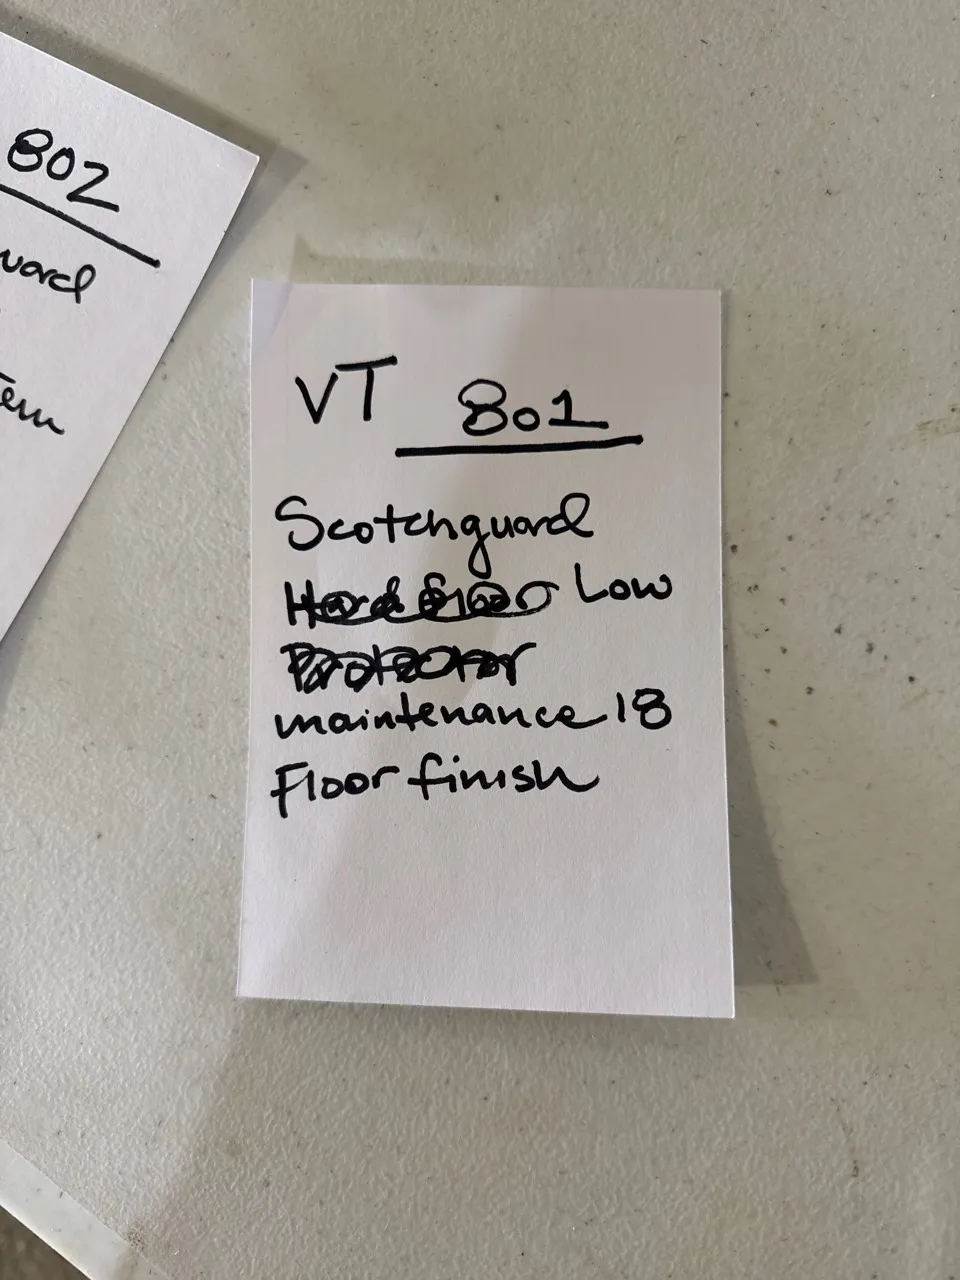 802
uard
Tem
VT 801
Scotchguard
Hard floor Low
Protector
maintenance 18
Floor finish